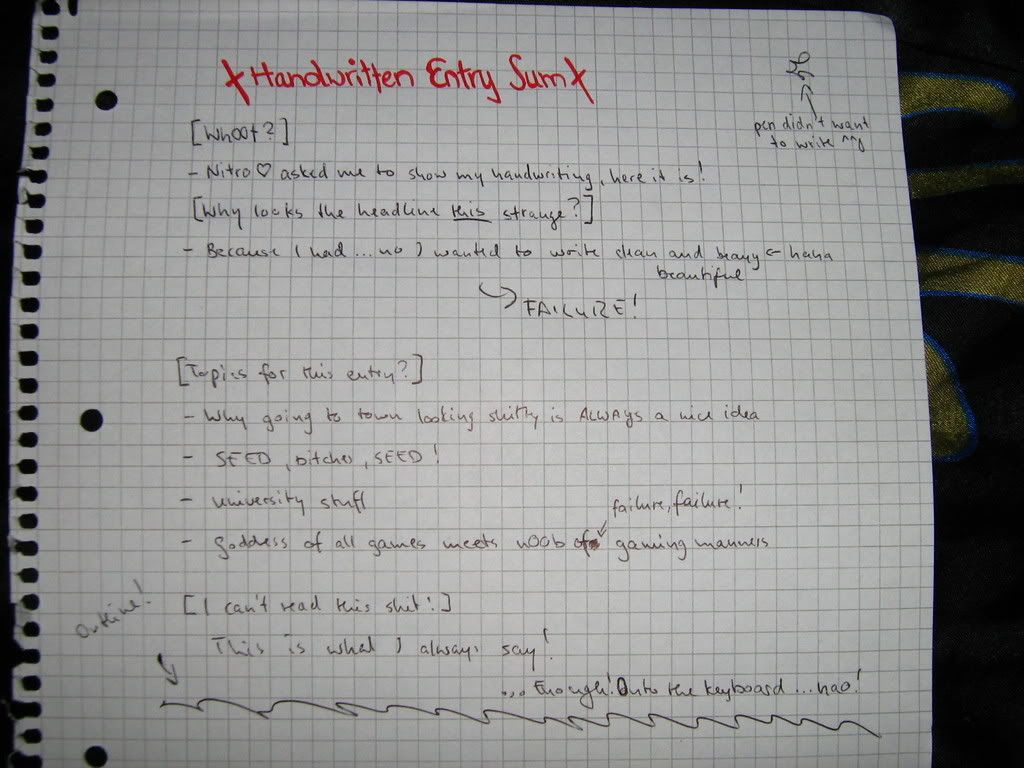 Handwritten Entry Sum
pen didn't want
to write ^^
[Whoot?]
- Nitro♡ asked me to show my handwriting, here it is!
[Why looks the headline this strange?]
- Because I had ... no I wanted to write clean and beauy <- haha
beautiful
FAILURE!
[Topics for this entry?]
- Why going to town looking shitty is ALWAYS a nice idea
- SEED, bitches, SEED!
- university stuff
failure, failure!
- Goddess of all games meets n00b of gaming manners
[I can't read this shit!]
This is what I always say!
Outline!
... Enough! Onto the keyboard ... nao!